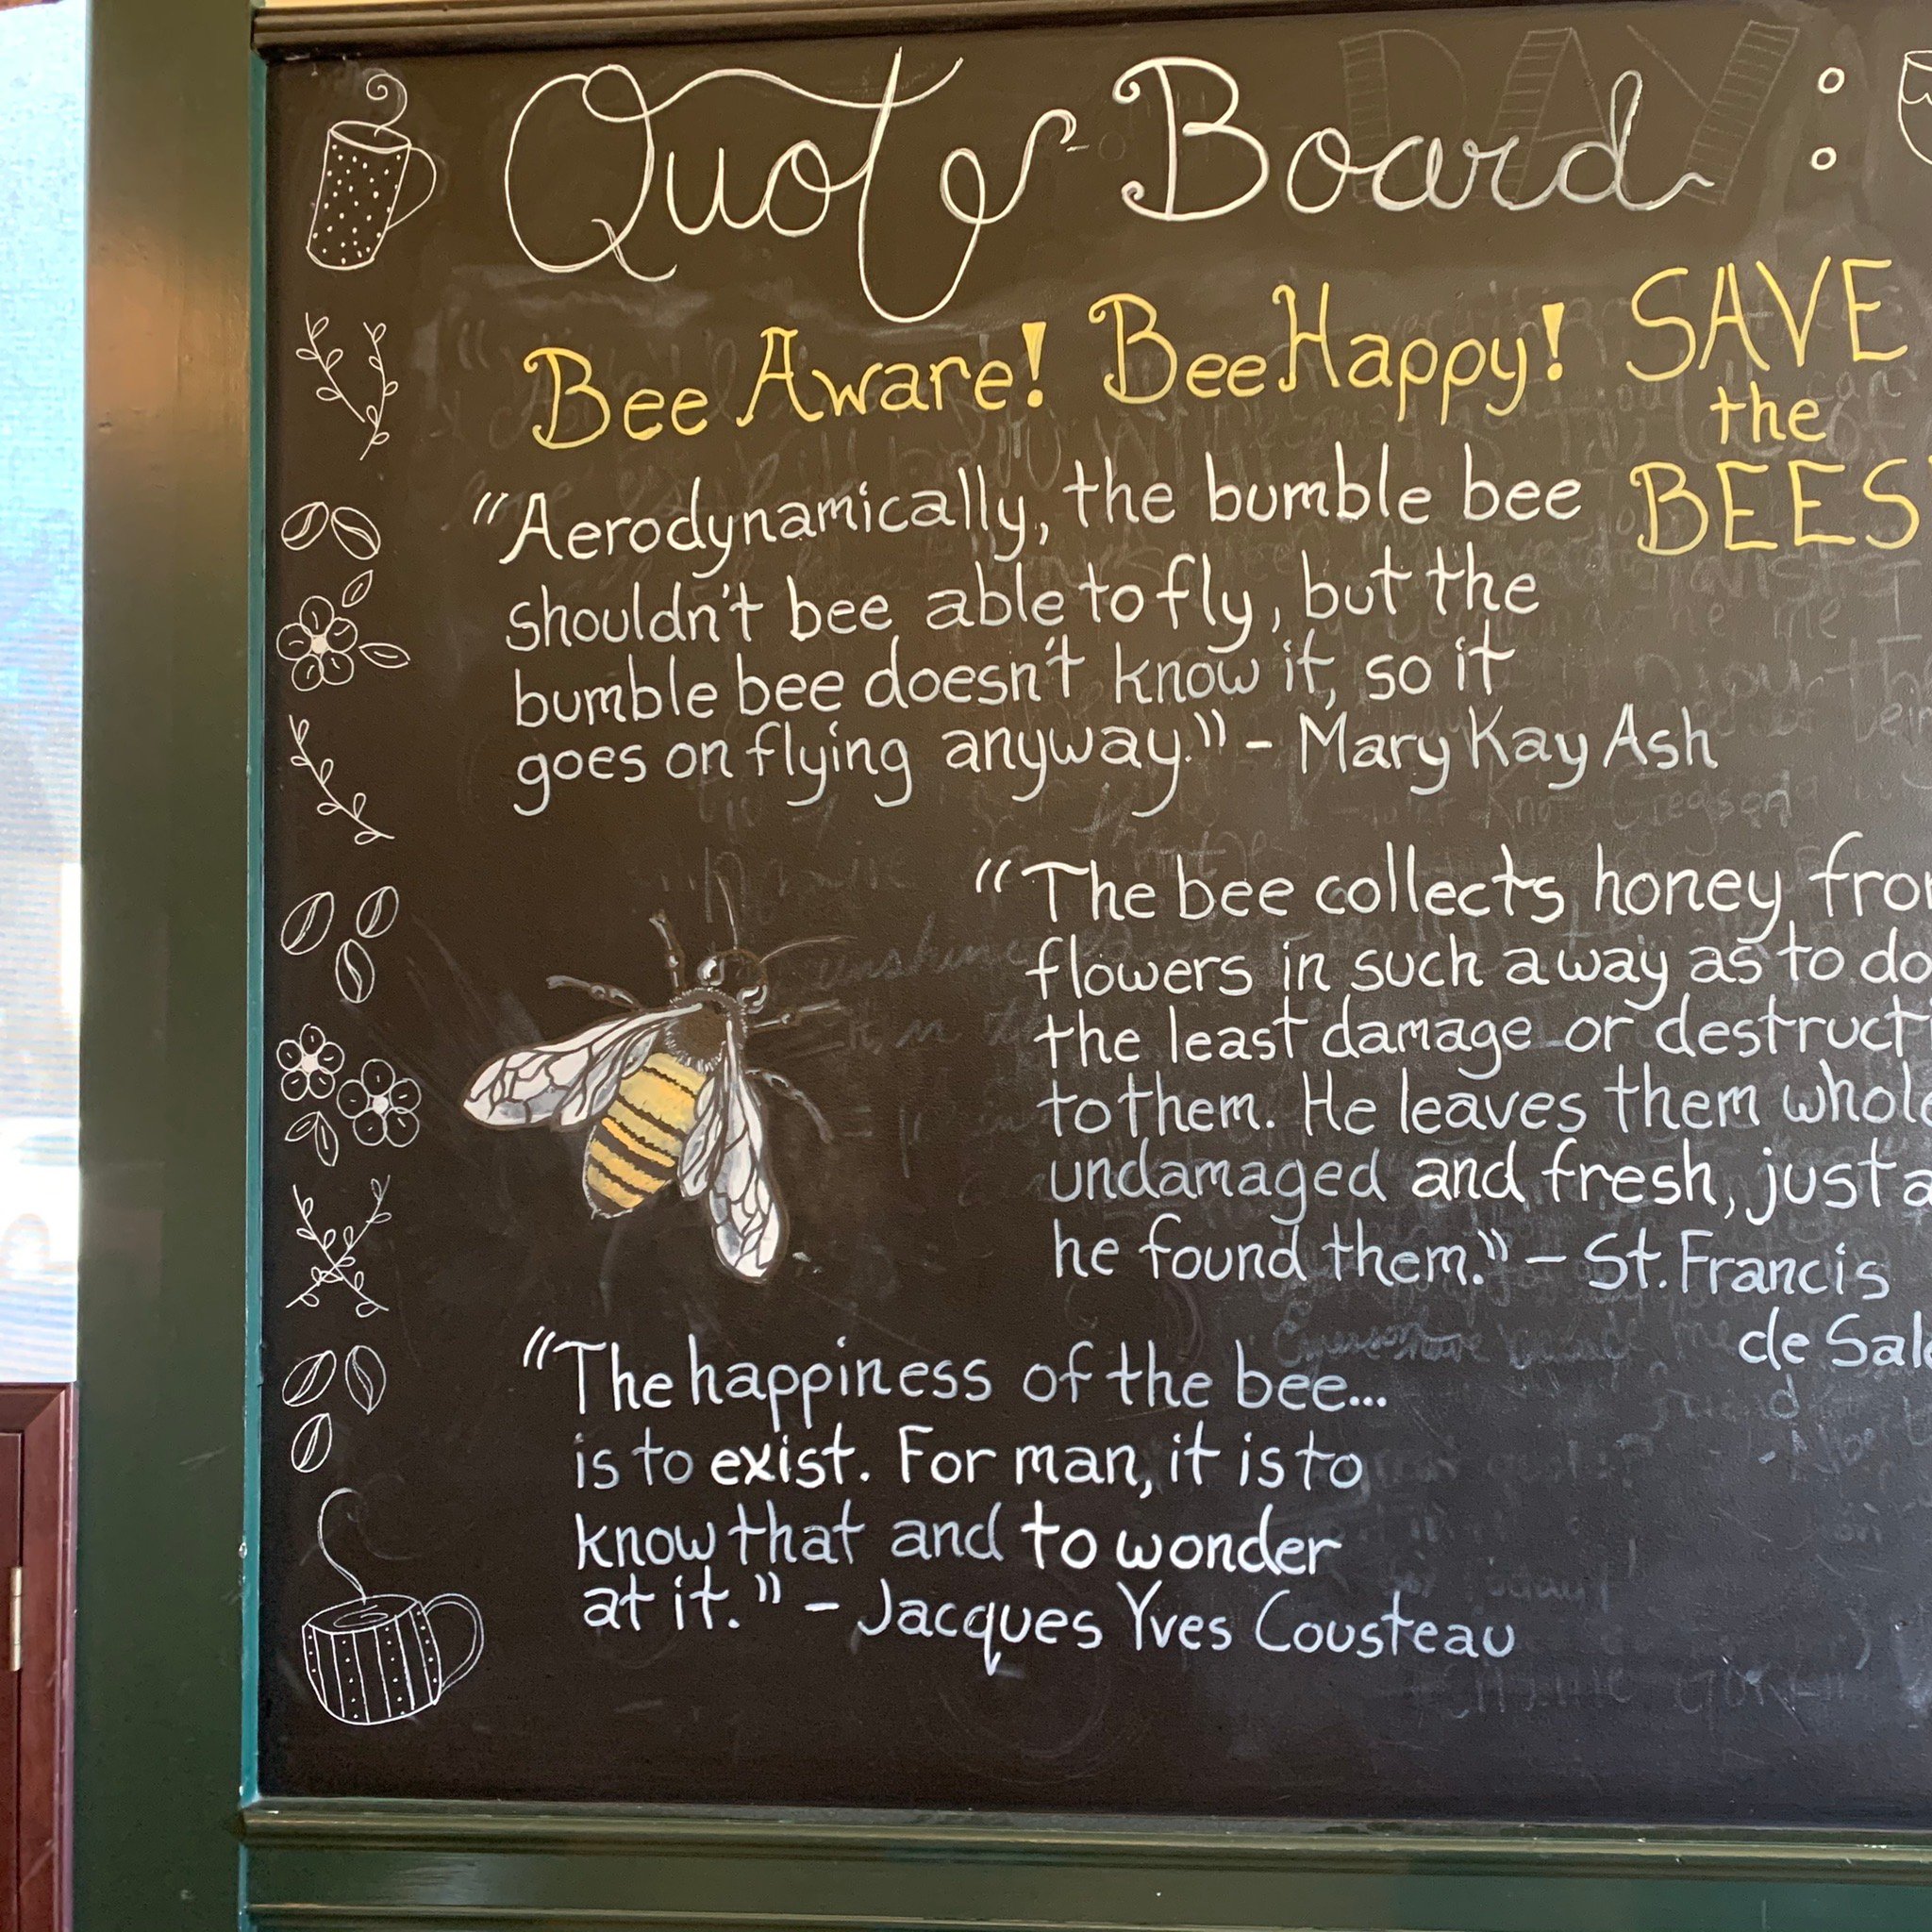 Quote Board :
Bee Aware! Bee Happy! SAVE
the
BEES
"Aerodynamically, the bumble bee
shouldn't bee able to fly, but the
bumble bee doesn't know it, so it
goes on flying anyway." - Mary Kay Ash
"The bee collects honey
flowers in such a way as to do
the least damage or
to them. He leaves them
undamaged and fresh, just
he found them." - St. Francis
de
"The happiness of the bee...
is to exist. For man, it is to
know that and to wonder
at it." - Jacques Yves Cousteau